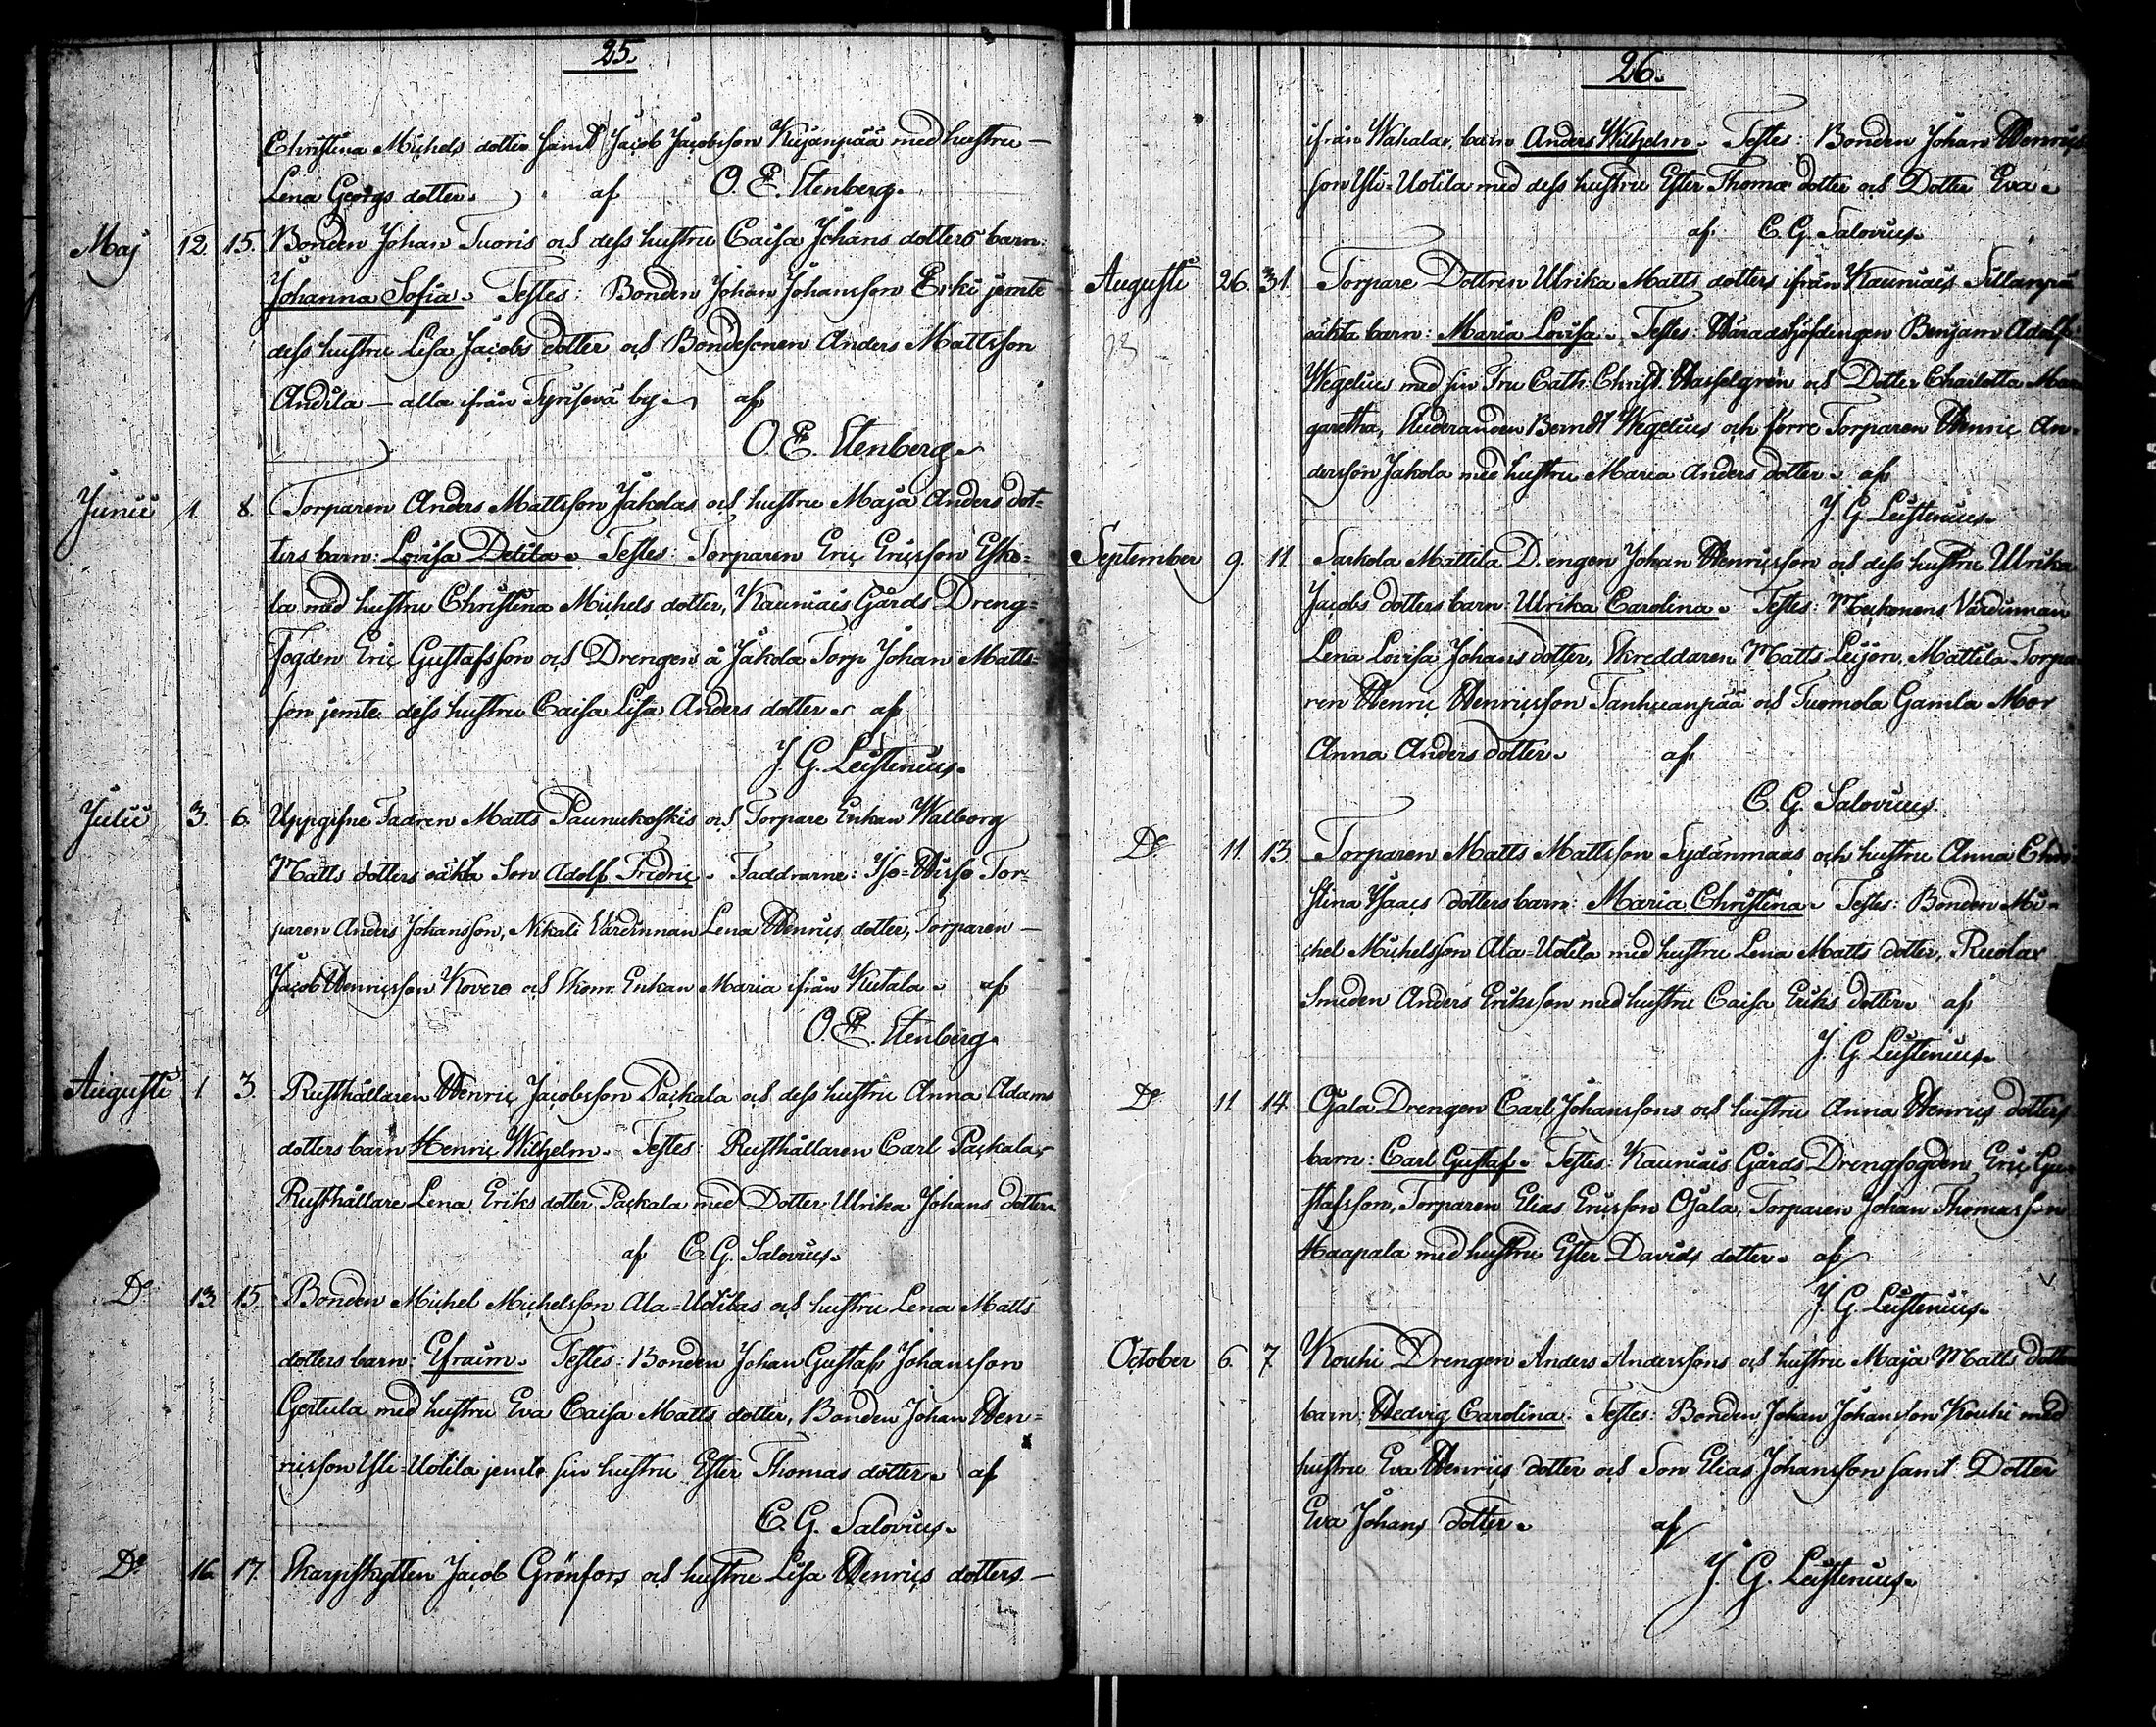 25.
Christina Michels dotter samt Jacob Jacobsson Kujanpää med hustru —
Lena Georgs dotter. af O. E. Stenberg.
Maj 12. 15. Bonden Johan Tuoris och dess hustru Caisa Johans dotters barn:
Johanna Sofia. Testes: Bonden Johan Johansson Erki jemte
dess hustru Lisa Jacobs dotter och Bondesonen Anders Mattsson
Andila — alla ifrån Tyrisevä by. af
O. E. Stenberg.
Junii 1. 8. Torparen Anders Mattsson Jakolas och hustru Maja Anders dot=
ters barn: Lovisa Delila. Testes: Torparen Eric Ericsson Esko=
la med hustru Christina Michels dotter, Kauniais Gårds Dreng=
Fogden Eric Gustafsson och Drengen å Jakola Torp Johan Matts=
son jemte dess hustru Caisa Lisa Anders dotter. af
J. G. Leistenius.
Julii 3. 6. Uppgifne Fadren Matts Paunukoskis och Torpare Enkan Walborg
Matts dotters oäkta Son Adolf Fredric. Faddrarne: Iso=Hirso Tor=
paren Anders Johansson, Nikali Värdinnan Lena Henrics dotter, Torparen —
Jacob Henricsson Kovero och Skom: Enkan Maria ifrån Kutala. af
O. E. Stenberg.
Augusti 1 3. Rusthållaren Henric Jacobsson Packala och dess hustru Anna Adams
dotters barn Henric Wilhelm. Testes: Rusthållaren Carl Packala,
Rusthållare Lena Eriks dotter Packala med Dotter Ulrika Johans dotter.
af C. G. Salovius.
Do 13. 15. Bonden Michel Michelsson Ala=Uotilas och hustru Lena Matts
dotters barn: Efraim. Testes: Bonden Johan Gustaf Johansson
Gertula med hustru Eva Caisa Matts dotter, Bonden Johan Hen=
ricsson Yli=Uotila jemte sin hustru Ester Thomas dotter. af
C. G. Salovius.
Do 16. 17. Skarpskytten Jacob Grönfors och hustru Lisa Henrics dotters —
26.
ifrån Wahalax, barn Anders Wilhelm. Testes: Bonden Johan Henrics
son Yli=Uotila med dess hustru Ester Thomæ dotter och Dotter Eva.
af C. G. Salovius.
Augusti 26. 31. Torpare Dottren Ulrika Matts dotters ifrån Kauniais Sillanpää
oäkta barn: Maria Lovisa. Testes: Häradshöfdingen Benjam Adolf
Wegelius med sin Fru Cath: Christ: Hasselgren och Dotter Charlotta Mar
garetha, Studeranden Berndt Wegelius och förre Torparen Henric An=
dersson Jakola med hustru Maria Anders dotter. af
J. G. Leistenius.
September 9. 11. Sarkola Mattila Drengen Johan Henricsson och dess hustru Ulrika
Jacobs dotters barn: Ulrika Carolina. Testes: Värdinnan
Lena Lovisa Johans dotter, Skreddaren Matts Leijon, Mattila Torpa
ren Henric Henricsson Tanhuanpää och Tuomola Gamla Mor
Anna Anders dotter. af
C. G. Salovius.
Do 11. 13. Torparen Matts Mattsson Sydänmaas och hustru Anna Chri
stina Isaacs dotters barn: Maria Christina. Testes: Bonden Mi=
chel Michelsson Ala=Uotila med hustru Lena Matts dotter,
Smeden Anders Eriksson med hustru Caisa Eriks dotter. af
J. G. Leistenius.
Do 11 14. Ojala Drengen Carl Johanssons och hustru Anna Henrics dotters
barn: Carl Gustaf. Testes: Kauniais Gårds Drengfogden Eric Gu
stafsson, Torparen Elias Ericsson Ojala, Torparen Johan Thomasson
Haapala med hustru Ester Davids dotter. af
J. G. Leistenius.
October 6. 7 Kouhi Drengen Anders Anderssons och hustru Maja Matts dotters
barn: Hedvig Carolina. Testes: Bonden Johan Johansson Kouhi med
hustru Eva Henrics dotter och Son Elias Johansson samt Dotter
Eva Johans dotter. af
J. G. Leistenius.